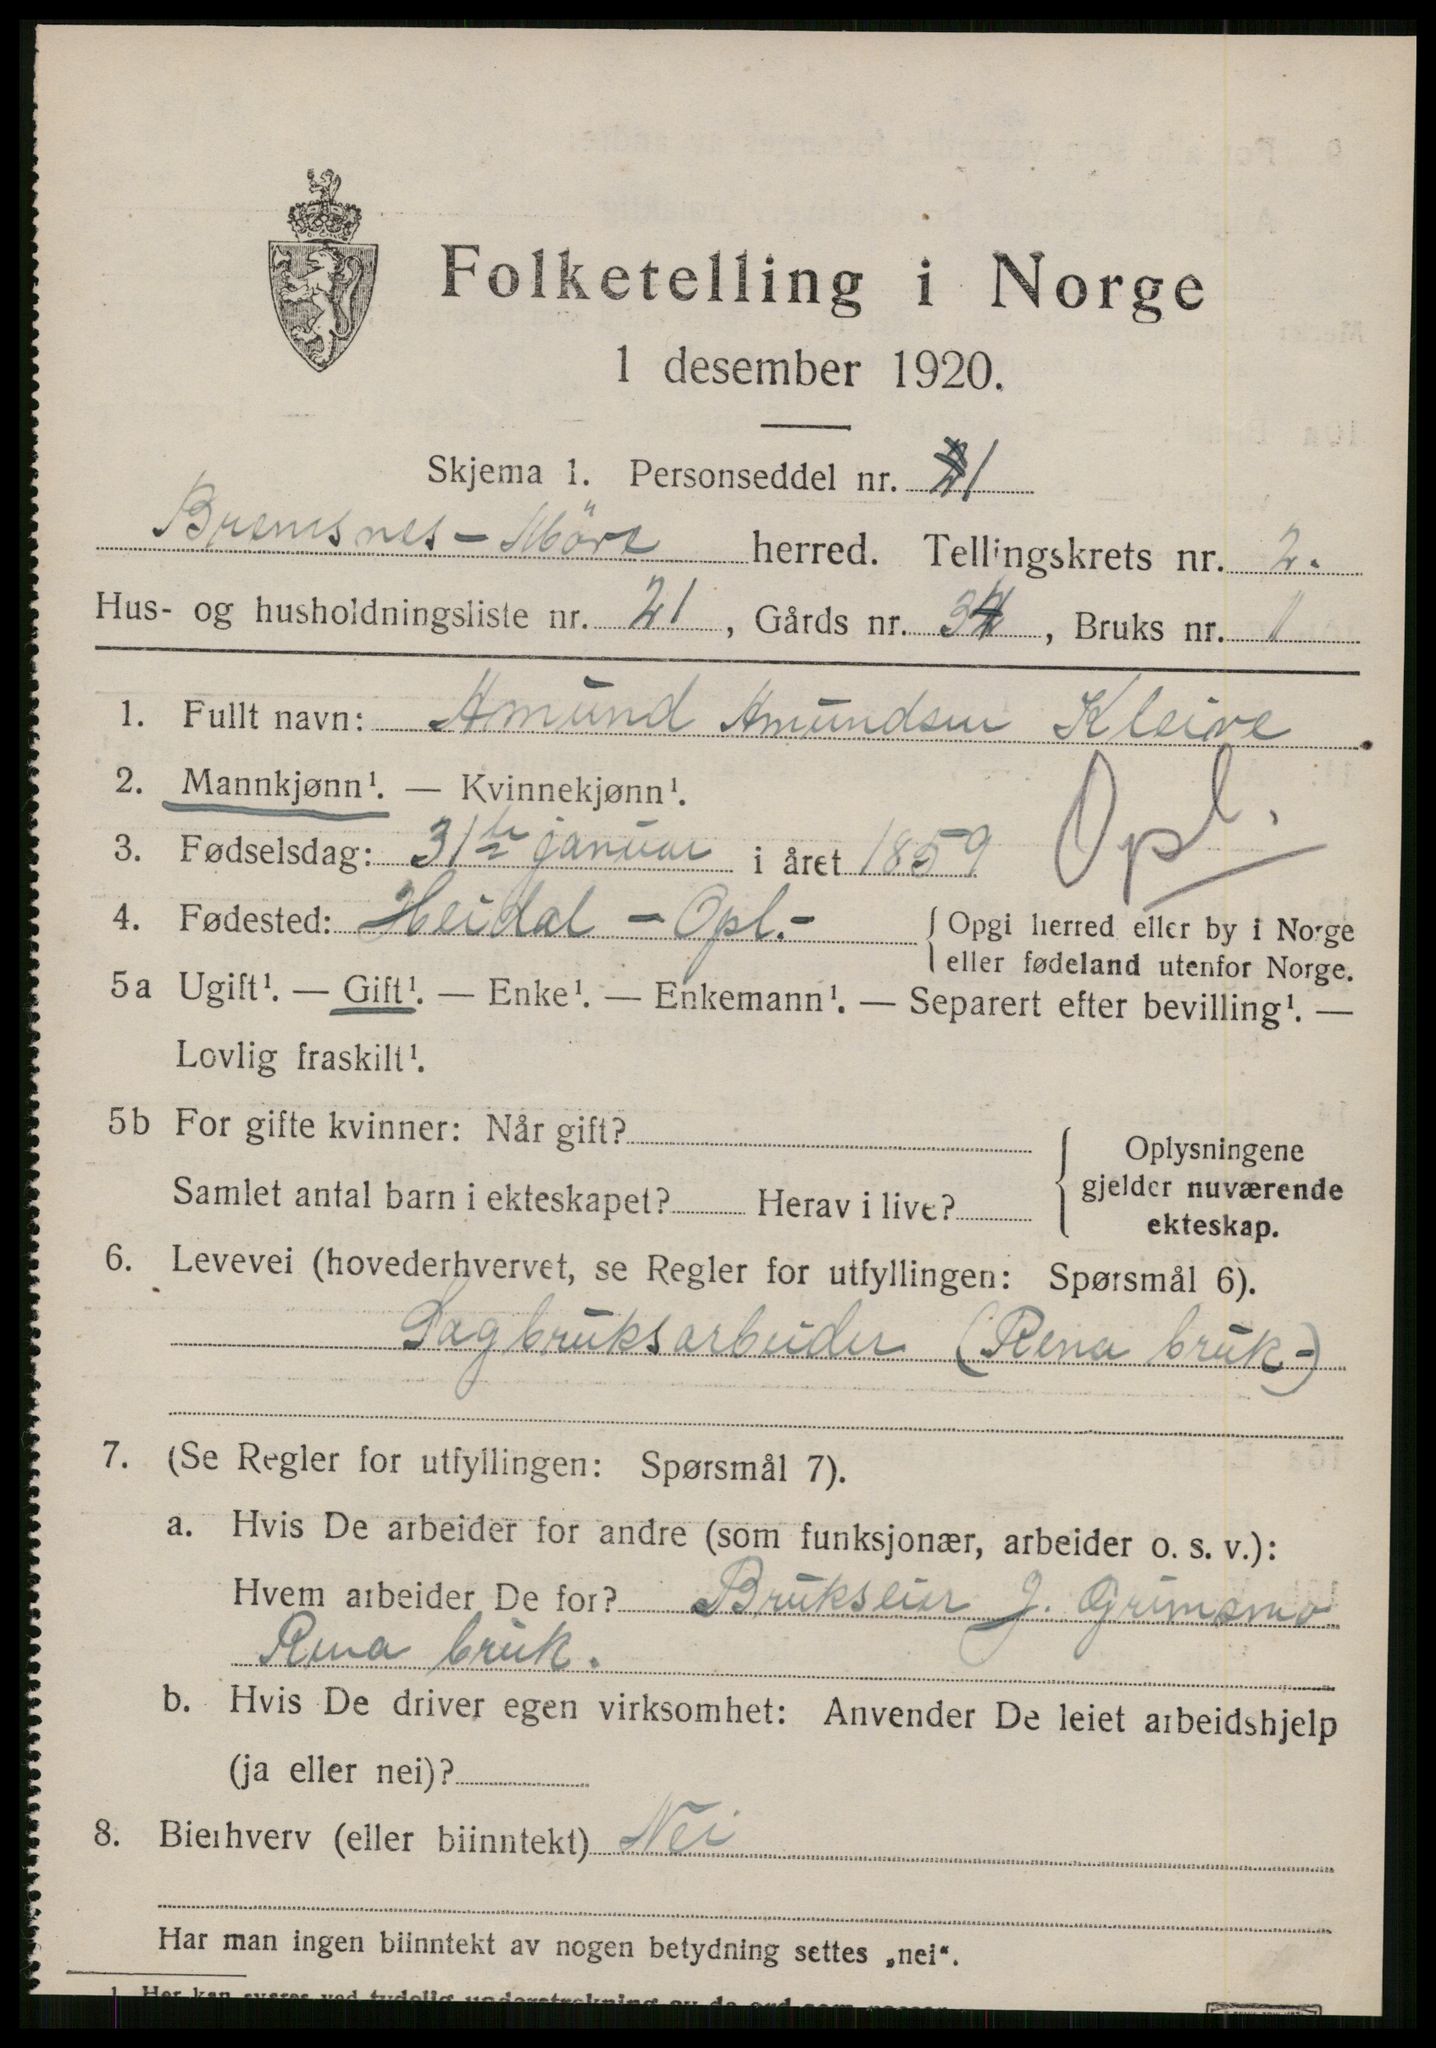 Folketelling i Norge
1 desember 1920.
Skjema 1. Personseddel nr. 1
Bremsnes - Möre herred. Tellingskrets nr. 2.
Hus- og husholdningsliste nr. 21, Gårds nr. 34, Bruks nr. 1
1. Fullt navn: Amund Amundsen Kleive
2. Mannkjønn¹. — Kvinnekjønn¹.
Opl.
3. Fødselsdag: 31te januar i året 1859
4. Fødested: Heidal - Opl. - { Opgi herred eller by i Norge
eller fødeland utenfor Norge.
5a Ugift¹. — Gift¹. — Enke¹. — Enkemann¹. — Separert efter bevilling¹. —
Lovlig fraskilt¹.
5b For gifte kvinner: Når gift?
Samlet antal barn i ekteskapet? Herav i live?
{ Oplysningene
gjelder nuværende
ekteskap.
6. Levevei (hovederhvervet, se Regler for utfyllingen: Spørsmål 6).
Sagbruksarbeider (Rena bruk-)
7. (Se Regler for utfyllingen: Spørsmål 7).
a. Hvis De arbeider for andre (som funksjonær, arbeider o. s. v.):
Hvem arbeider De for? Brukseier J. Grimsmo
Rena bruk.
b. Hvis De driver egen virksomhet: Anvender De leiet arbeidshjelp
(ja eller nei)?
8. Bierhverv (eller biinntekt) Nei
Har man ingen biinntekt av nogen betydning settes „nei“.